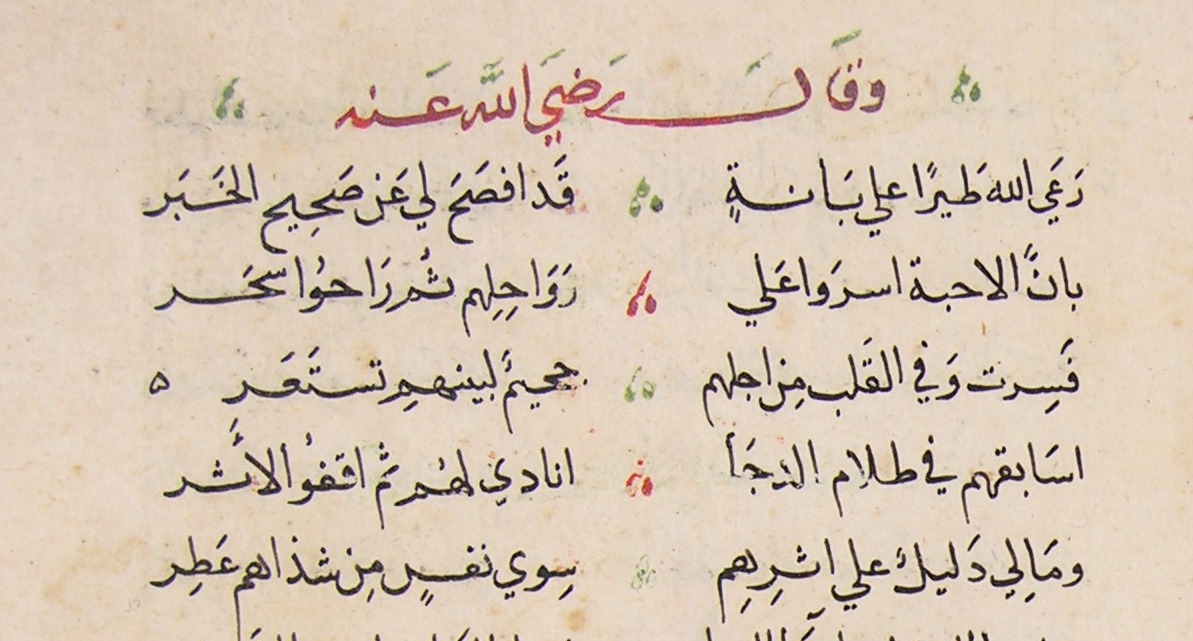 وقال رَضيَ اللَّه عَنه
رَعَي الله طَيرًا علي بَانةٍ قَد افصَحَ لي عَن صَحِيح الخَبَر
بانَّ الاحبة اسرَوا عَلي رَوَاحِلِهم ثُم رَاحوُا سحَر
فَسِرت وَفي القَلب مِن اجلهم جحيمٌ لبينهم تستَعَر
اسَابقهم في ظلام الدجَا انادي لهُم ثمَّ اقفوُ الأثر
ومَالِي دَليلٌ علي اثرِهِم سِوي نفسٍ مِن شذاهم عَطِر